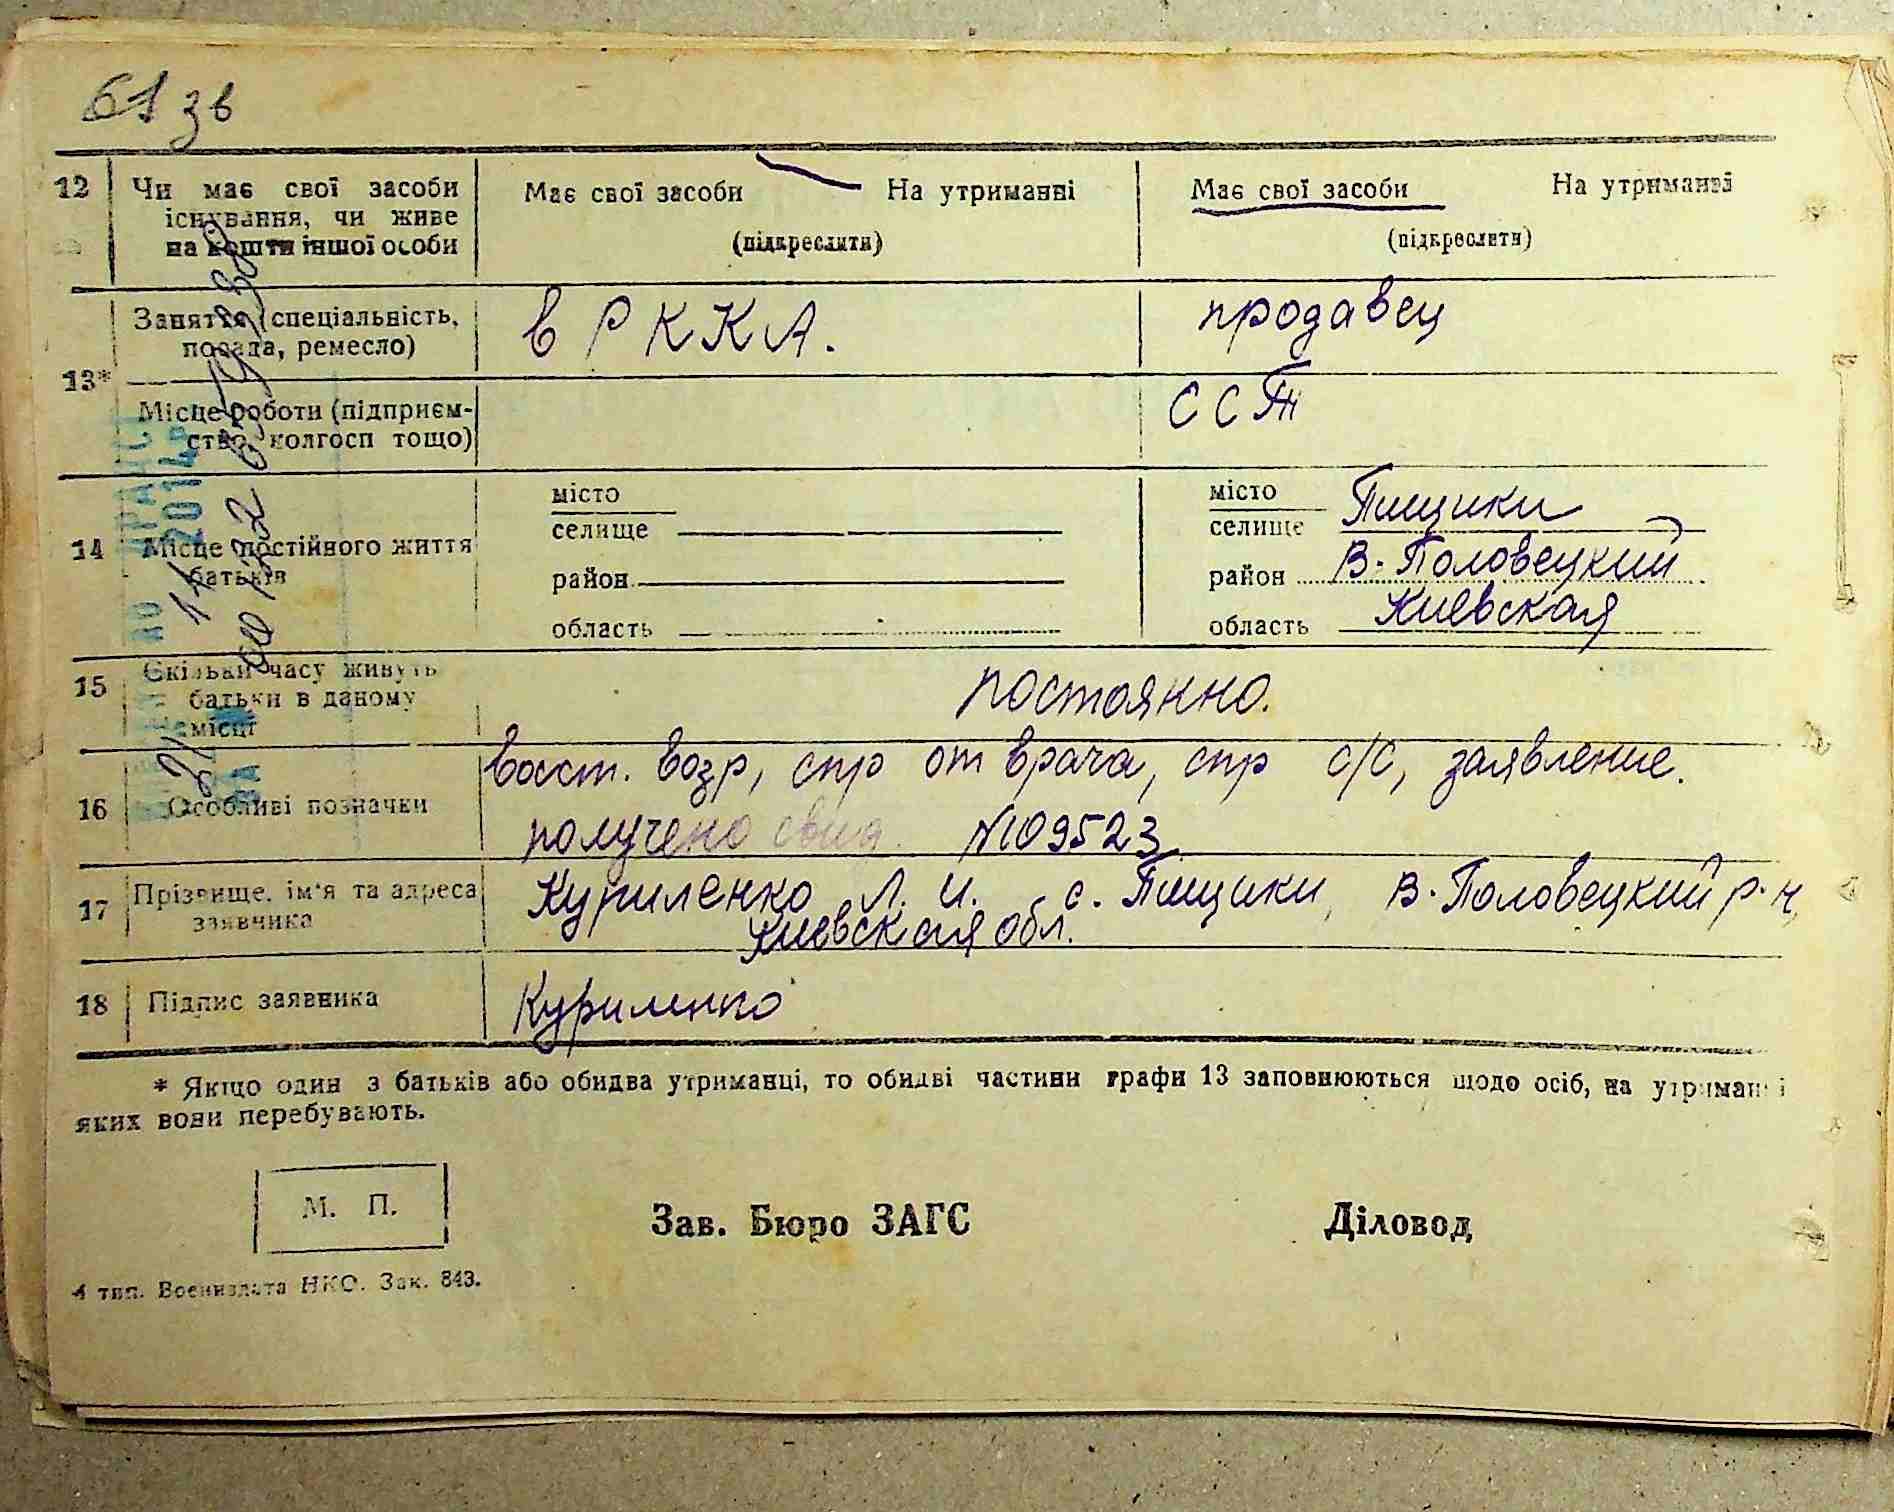 61 зв
12 Чи має свої засоби існування, чи живе на кошти іншої особи
Має свої засоби На утриманні
(підкреслити)
Має свої засоби На утриманні
(підкреслити)
13*
Заняття (спеціальність, посада, ремесло)
в РККА.
продавец
Місце роботи (підприємство, колгосп тощо)
ССТ
14 Місце постійного життя батьків
місто
селище
район
область
місто
селище Пищики
район В-Половецкий
область Киевская
15 Скільки часу живуть батьки в даному місці
постоянно.
16 Особливі позначки
восст. возр, спр от врача, спр с/с, заявление.
получено свид. №109523
17 Прізвище, ім'я та адреса заявника
Куриленко Л. И. с. Пищики, В-Половецкий р-н,
Киевская обл.
18 Підпис заявника
Куриленко
* Якщо один з батьків або обидва утриманці, то обидві частини графи 13 заповнюються щодо осіб, на утриманні
яких вони перебувають.
М. П.
Зав. Бюро ЗАГС
Діловод
4 тип. Воениздата НКО. Зак. 843.